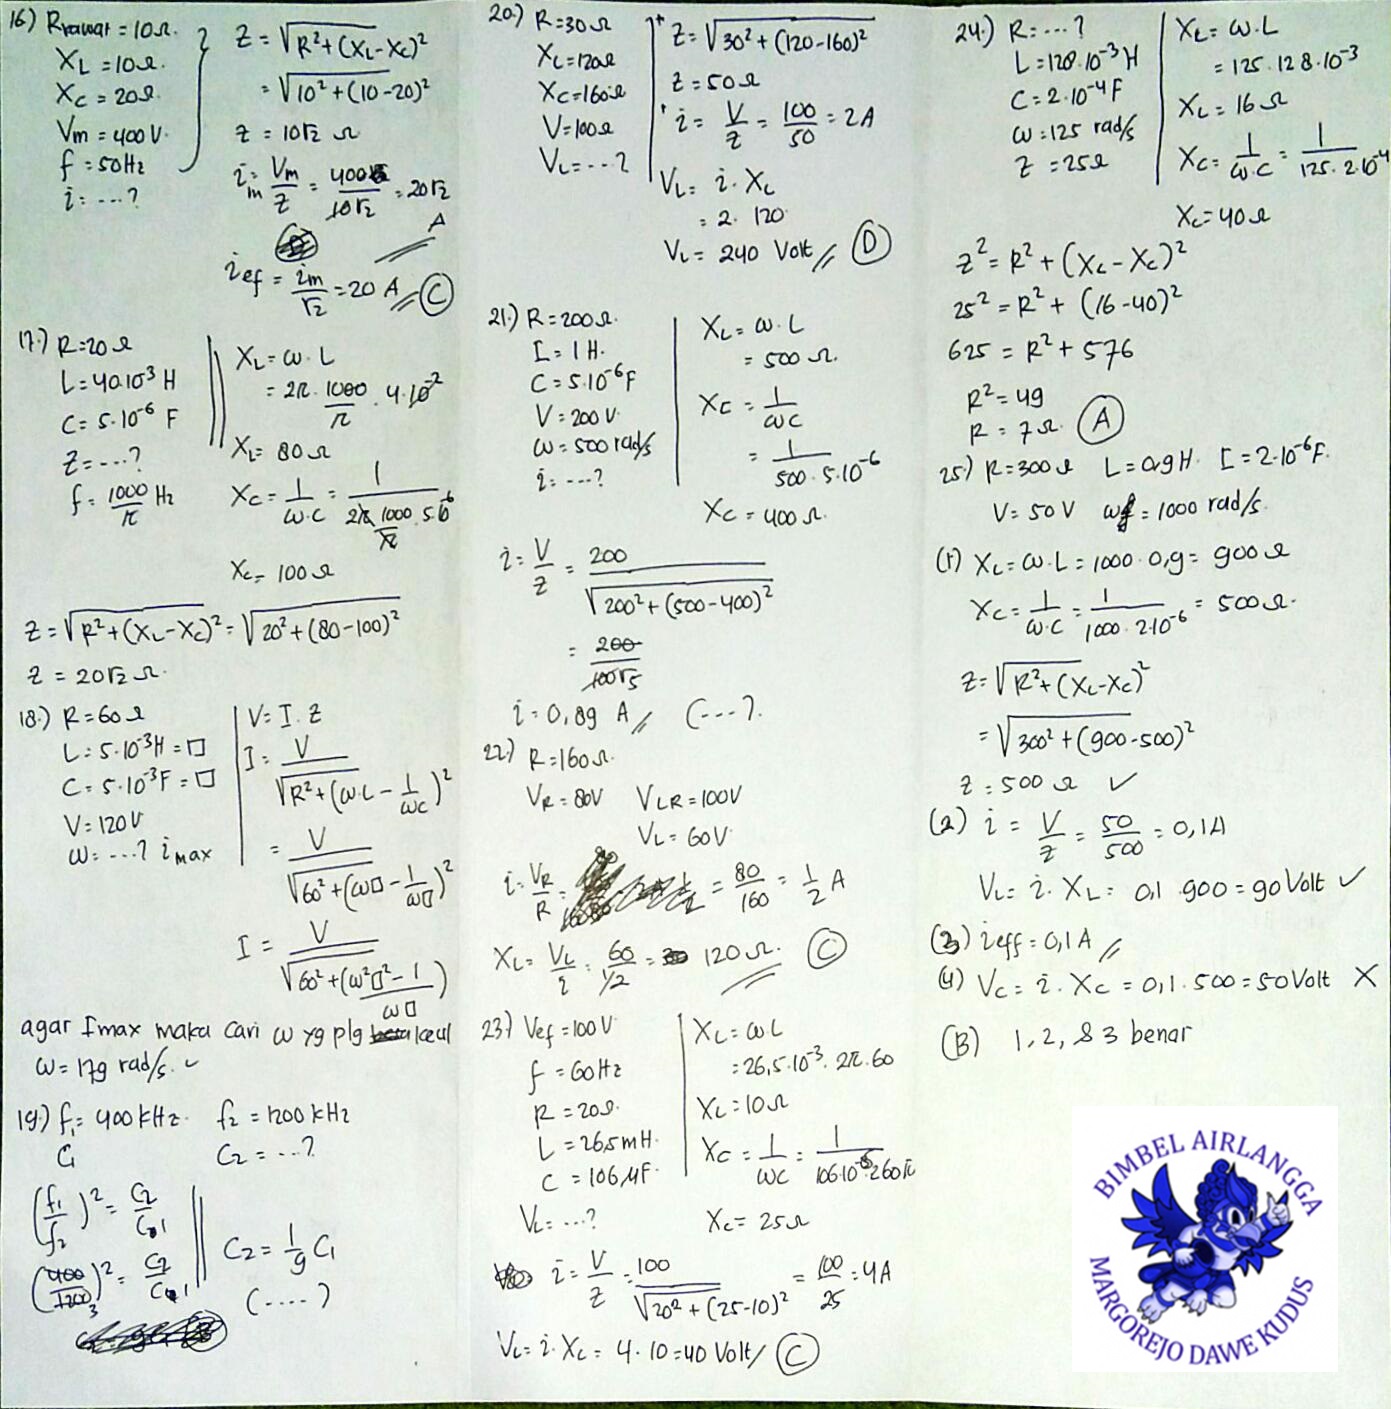 16) Rkawat = 10Ω.
XL = 10Ω.
Xc = 20Ω.
Vm = 400 V.
f = 50Hz
i = ...?
Z = √R²+(XL-Xc)²
= √10²+(10-20)²
Z = 10√2 Ω
im = Vm/Z = 400/10√2 = 20√2 A
ief = im/√2 = 20 A (C)
17.) R=20Ω
L=40.10³ H
C= 5.10⁻⁶ F
Z= ...?
f = 1000/π Hz
XL= ω.L
= 2π. 1000/π . 4.10⁻²
XL= 80Ω
Xc= 1/ω.C = 1/2π 1000/π .5.10⁻⁶
Xc= 100Ω
Z=√R²+(XL-Xc)² = √20²+(80-100)²
Z = 20√2 Ω.
18.) R=60Ω
L= 5.10⁻³H = □
C= 5.10⁻³F = □
V= 120V
ω= ...? imax
V= I. Z
I= V/√R²+(ω.L - 1/ωC)²
= V/√60²+(ω□ - 1/ω□)²
I = V/√60²+(ω²□²-1/ω□)
agar Imax maka cari ω yg plg kecil
ω= 179 rad/s. ✓
19.) f₁= 400 kHz. f2 = 1200 kHz
C₁ C2 = ...?
(f1/f2)² = C2/C1
(400/1200)² = C2/C1
3
C2= 1/9 C1
(....?
20.) R=30Ω
XL=120Ω
Xc=160Ω
V=100Ω
VL= ...?
Z= √30²+(120-160)²
Z= 50Ω
i= V/Z = 100/50 = 2A
VL= i. XL
= 2. 120
VL= 240 Volt (D)
21.) R=200Ω.
I= 1 H.
C= 5.10⁻⁶F
V= 200 V.
ω= 500 rad/s
i= ...?
XL= ω.L
= 500 Ω.
Xc = 1/ωC
= 1/500.5.10⁻⁶
Xc= 400Ω.
i= V/Z = 200/√200²+(500-400)²
= 200/100√5
i= 0,89 A (...?.
22.) R=160Ω.
VR= 80V VLR=100V
VL= 60V.
i= VR/R = 80/160 = 1/2 A
XL= VL/i = 60/1/2 = 120Ω. (C)
23.) Vef=100V
f = 60Hz
R=20Ω.
L=26,5mH.
C = 106μF.
VL= ...?
XL= ωL
= 26,5.10⁻³. 2π.60
XL= 10Ω
Xc= 1/ωC = 1/106.10⁻⁶.260π
Xc= 25Ω
i= V/Z = 100/√20²+(25-10)² = 100/25 = 4A
VL= i. XL = 4. 10=40 Volt (C)
24.) R=...?
L=128.10⁻³H
C=2.10⁻⁴F
ω=125 rad/s
Z=25Ω
XL= ω.L
= 125.128.10⁻³
XL= 16Ω
Xc= 1/ω.C = 1/125.2.10⁻⁴
Xc= 40Ω
Z² = R²+(XL-Xc)²
25² = R²+ (16-40)²
625 = R²+ 576
R²= 49
R= 7Ω. (A)
25.) R=300Ω L=0,9H. I=2.10⁻⁶F.
V= 50V ω = 1000 rad/s.
(1) XL= ω.L= 1000. 0,9= 900Ω
Xc= 1/ω.C = 1/1000.2.10⁻⁶ = 500Ω.
Z= √R²+(XL-Xc)²
= √300²+(900-500)²
Z= 500Ω ✓
(2) i = V/Z = 50/500 = 0,1A
VL= i. XL= 0,1 .900=90Volt ✓
(3) ieff= 0,1A
(4) Vc= i. Xc = 0,1. 500=50Volt X
(B) 1,2, & 3 benar
BIMBEL AIRLANGGA
MARGOREJO DAWE KUDUS